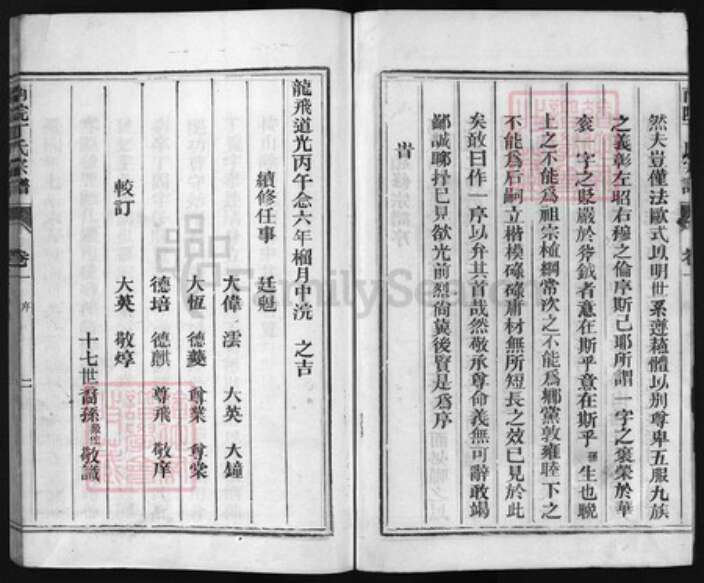 然夫豈僅法歐式以明世系遵蘓體以別尊卑五服九族
之義彰左昭右穆之倫序斯己耶所謂一字之褒榮於華
袞一字之貶嚴於斧鉞者意在斯乎意在斯乎 生也晚
上之不能爲祖宗植綱常次之不能爲鄉黨敦雍睦下之
不能爲后嗣立楷模碌碌庸材無所短長之效已見於此
矣敢曰作一序以弁其首哉然敬承尊命義無可辭敢竭
鄙誠聊抒己見欲光前烈尙冀後賢是爲序
旹
龍飛道光丙午念六年榴月中浣 之吉
續修任事 廷魁
大偉 澐 大英 大鐘
大恆 德夔 尊業 尊棠
德培 德麒 尊飛 敬庠
較訂 大英 敬焞
十七世裔孫 敬識
南院丁氏宗譜 卷一 序 二
FamilySearch